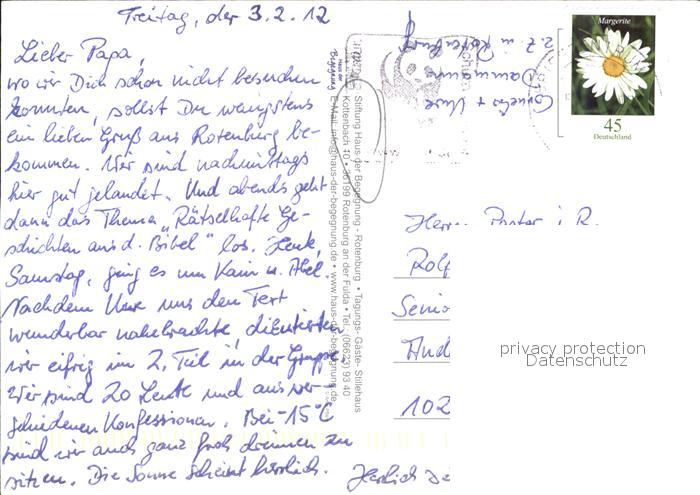 Freitag, der 3.2.12
Lieber Papa,
wo wir Dich schon nicht besuchen
konnten, sollst Du wenigstens
ein lieben Gruß aus Rotenburg be-
kommen. Wir sind nachmittags
hier gut gelandet. Und abends geht
dann das Thema „Rätselhafte Ge-
schichten aus d. Bibel" los. Heute,
Samstag, ging es um Kain u. Abel.
Nachdem Uwe uns den Text
wunderbar nahebrachte, diskutierten
wir eifrig im 2. Teil in der Gruppe.
Wir sind 20 Leute und aus ver-
schiedenen Konfessionen. Bei -15°C
sind wir auch ganz froh drinnen zu
sitzen. Die Sonne scheint herrlich.
Herzlich
Haus der
Begegnung
Stiftung Haus der Begegnung - Rotenburg • Tagungs- Gäste- Stillehaus
Kottenbach 10 • 36199 Rotenburg an der Fulda • Tel. (06623) 93 40
E-Mail: info@haus-der-begegnung.de • www.haus-der-begegnung.de
+ Uwe
z. Z. in Rotenburg
Margerite
45
Deutschland
Herrn Pastor i. R.
Rolf
Senio
And
102
privacy protection
Datenschutz